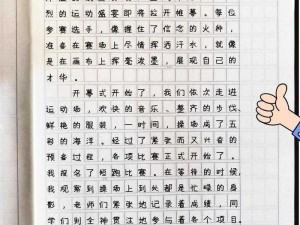 烈的运动盛宴即将拉开帷幕。每位
参赛选手，像握住了信念的火种，
准备在赛场上尽情挥洒汗水，就像
是在画布上挥毫泼墨，展现自己的
才华。
开幕式开始了，我们依次走进
运动场，欢快的音乐、整齐的步伐、
鲜艳的服装，一时间，操场成了五
彩的海洋。经过了紧张而又兴奋的
预备过程，各项比赛正式开始了。
我报名了短跑比赛，在等待的时候，
我观察到操场上到处都是忙碌的身
影，老师们紧张地记录着成绩，同
学们则全神贯注地参与着各个项目。